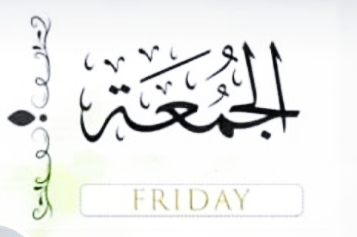 الجُمُعَة
FRIDAY